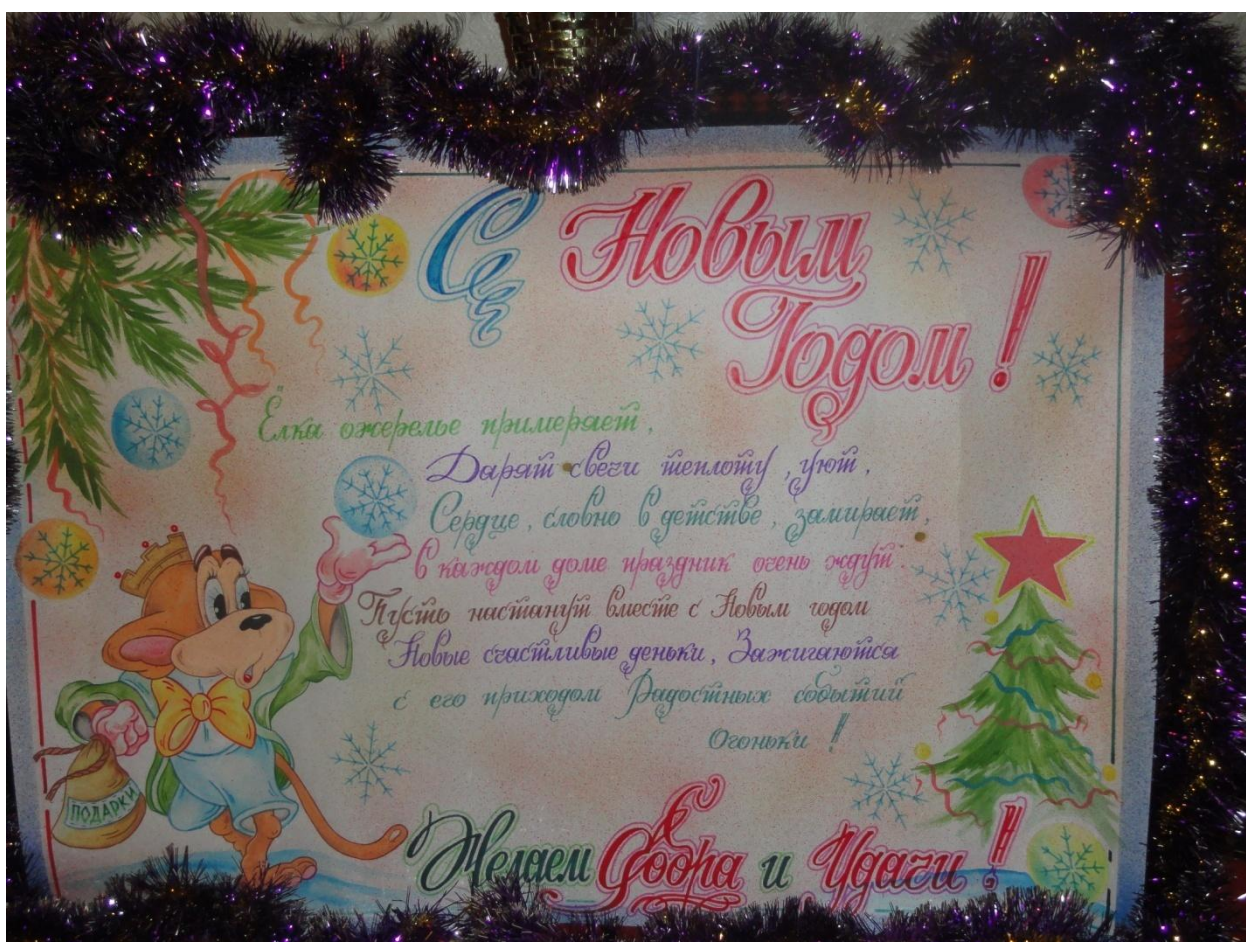 С Новым
Годом!
Ёлка ожерелье примеряет,
Дарят свечи теплоту, уют,
Сердце, словно в детстве, замирает,
В каждом доме праздник очень ждут.
Пусть настанут вместе с Новым годом
Новые счастливые деньки, Зажигаются
с его приходом Радостных событий
Огоньки!!
ПОДАРКИ
Желаем Добра и Удачи!